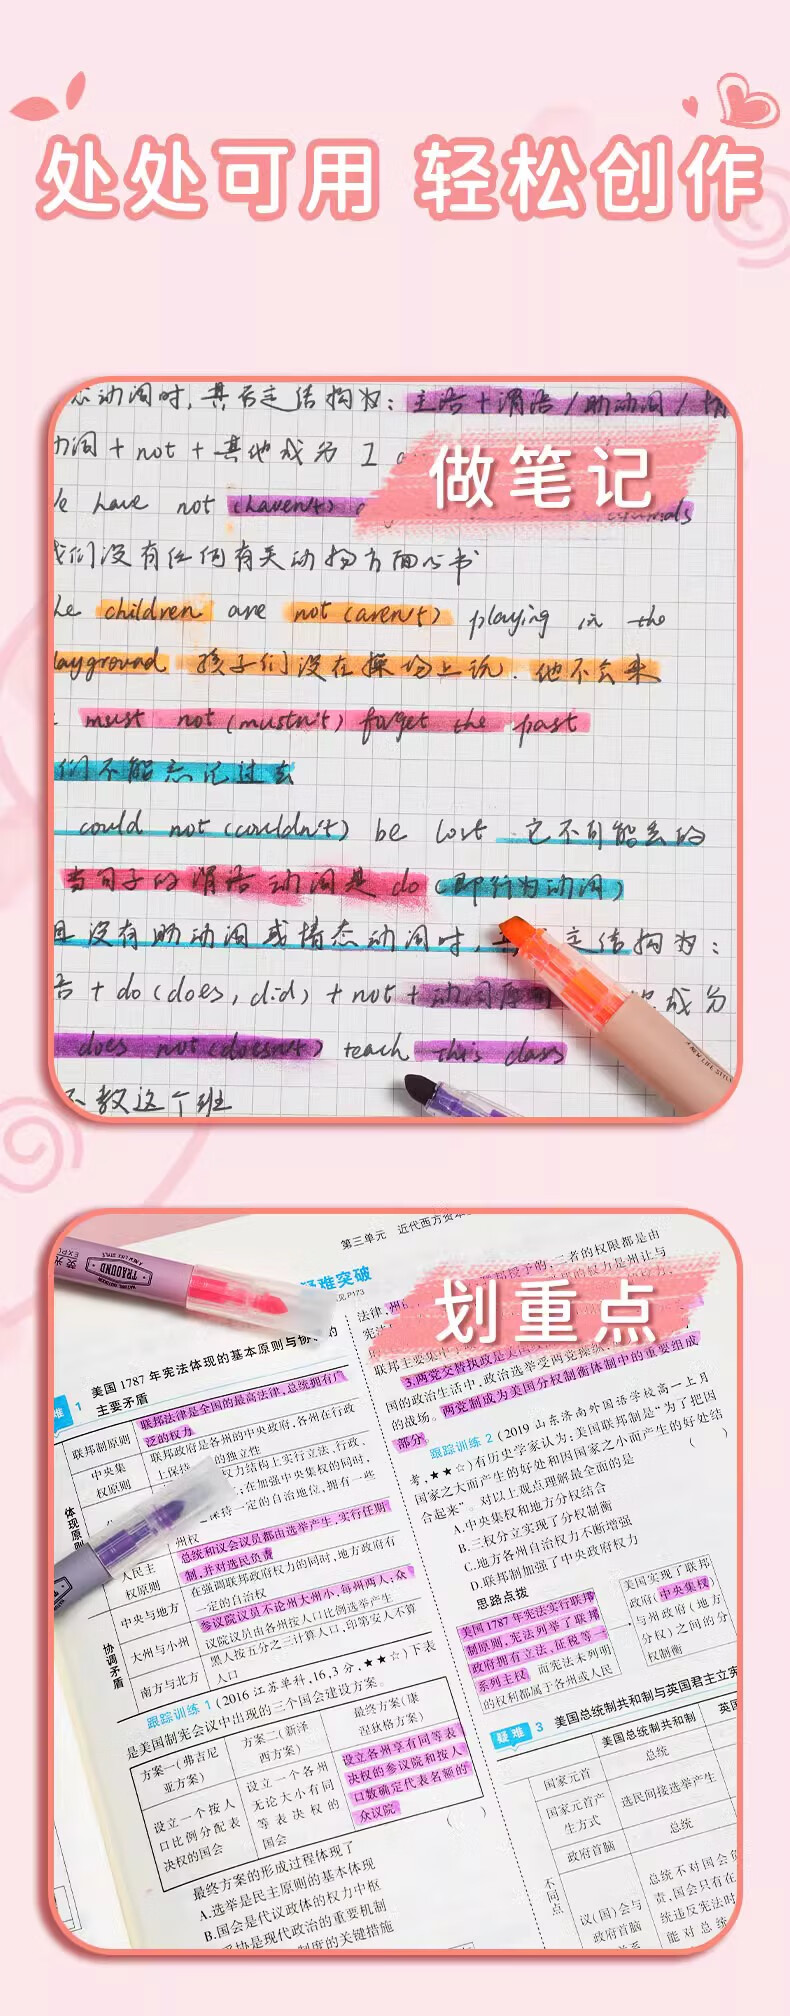 处处可用 轻松创作
做笔记
态动词时,其否定结构为:主语+谓语/助动词/情
动词+not+其他成分 I
We have not (haven't)
animals
我们没有任何有关动物方面的书
The children are not (aren't) playing in the
playground 孩子们没在操场上玩.他不会来
must not (mustn't) forget the past
们不能忘记过去
could not (couldn't) be lost 它不可能丢的
当句子的谓语动词是do(即行为动词)
且没有助动词或情态动词时,其否定结构为:
语+do(does,did)+not+动词原形 他成分
does not (doesn't) teach this class
不教这个班
A NEW LIFE STYLE
划重点
第三单元 近代西方资本
疑难突破
见P173
TRAOUND
美国1787年宪法体现的基本原则与协 的
难 1
主要矛盾
体现原则
联邦制原则
联邦法律是全国的最高法律,总统拥有广
泛的权力
中央集
权原则
联邦政府是各州的中央政府,各州在行政
上保持 的独立性
权力结构上实行立法、行政、
在加强中央集权的同时,
保持一定的自治地位,拥有一些
州权
人民主
权原则
总统和议会议员都由选举产生,实行任期
制,并对选民负责
协调矛盾
中央与地方
在强调联邦政府权力的同时,地方政府有
一定的自治权
大州与小州
参议院议员不论州大州小,每州两人,众
议院议员由各州按人口比例选举产生
南方与北方
黑人按五分之三计算人口,印第安人不算
人口
跟踪训练 1 (2016江苏单科,16,3分,★★☆)下表
是美国制宪会议中出现的三个国会建设方案。
方案一(弗吉尼
亚方案)
方案二(新泽
西方案)
最终方案(康
涅狄格方案)
设立一个按人
口比例分配表
决权的国会
设立一个各州
无论大小有同
等表决权的
国会
设立各州享有同等表
决权的参议院和按人
口数确定代表名额的
众议院
( )
最终方案的形成过程体现了
A.选举是民主原则的基本体现
B.国会是代议政体的权力中枢
妥协是现代政治的重要机制
制度的关键措施
授予的,二者的权限都是由
的权力是州让与
法律,州
宪法
联邦主要集中于
3.两党交替执政是美国
国的政治生活中,政治选举受两党操纵
的战场。两党制成为美国分权制衡体制中的重要组成
部分。
跟踪训练 2 (2019山东济南外国语学校高一上月
考,★★☆)有历史学家认为:美国联邦制是“为了把因
国家之大而产生的好处和因国家之小而产生的好处结
合起来”。对以上观点理解最全面的是 ( )
A.中央集权和地方分权结合
B.三权分立实现了分权制衡
C.地方各州自治权力不断增强
D.联邦制加强了中央政府权力
思路点拨
美国1787年宪法实行联邦
制原则,宪法列举了联邦
政府拥有立法、征税等一
系列主权,而宪法未列明
的权利都属于各州或人民
美国实现了联邦
政府(中央集权)
与州政府(地方
分权)之间的分
权制衡
疑难 3 美国总统制共和制与英国君主立宪
美国总统制共和制
英国
国家元首
总统
国家元首产
生方式
选民间接选举产生
政府首脑
总统
不同点
议(国)会与
政府首脑
关系
总统不对国会负
责,国会只有在
统违反宪法时
能对总统